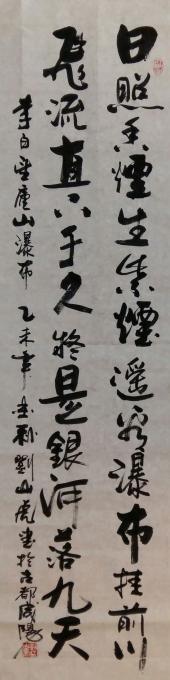 日照香煙生紫煙遥看瀑布挂前川
飛流直下千尺疑是銀河落九天
李白望廬山瀑布 乙未年 劉山虎書於古都咸陽